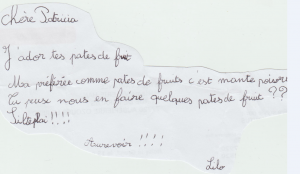 Chère Patricia
J'ador tes pates de fruit
Ma préférée comme pates de fruits c'est mante poivre
Tu peuse nous en faire quelques pates de fruit ??
Sulteplai !!!!
Aurevoir !!!!
Lilo